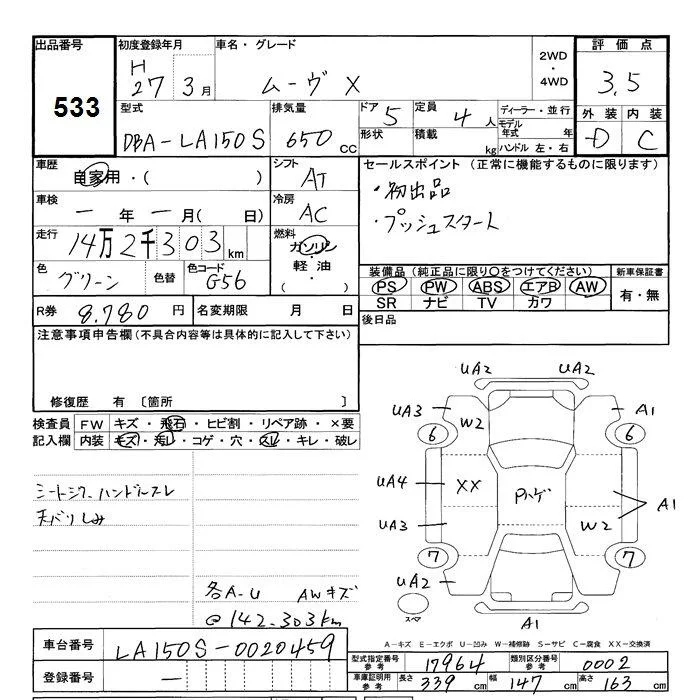 出品番号
533
初度登録年月
H 27 3月
車名・グレード
ムーヴ X
2WD・4WD
評価点
3.5
型式
DBA-LA150S
排気量
650 CC
ドア 5
形状
定員 4人
積載 kg
ディーラー・並行
モデル年式 年
ハンドル 左・右
外装 内装
D C
車歴
自家用・( )
シフト
AT
セールスポイント (正常に機能するものに限ります)
・初出品
・プッシュスタート
車検
一年一月( 日)
冷房
AC
走行
14万2千303km
燃料
ガソリン・軽油・( )
色
グリーン
色替
色コード
G56
装備品 (純正品に限り○をつけてください)
PS PW ABS エアB AW
SR ナビ TV カワ
新車保証書
有・無
R券 8.780 円
名変期限 月 日
後日品
注意事項申告欄(不具合内容等は具体的に記入して下さい)
修復歴 有 〔箇所 〕
検査員記入欄
FW キズ・飛石・ヒビ割・リペア跡・×要
内装 キズ・汚レ・コゲ・穴・スレ・キレ・破レ
シートシワ ハンドルスレ
天バリしみ
各A-U AWキズ
@142.303km
UA2 UA2
UA3 W2 A1
6 6
UA4 XX Pハゲ A1
UA3 W2
7 7
UA2
スペア
A1
A-キズ E-エクボ U-凹み W-補修跡 S-サビ C-腐食 XX-交換済
車台番号
LA150S-0020459
登録番号
一
型式指定番号 参考 17964
類別区分番号 参考 0002
車庫証明用 参考 長さ 339 cm 幅 147 cm 高さ 163 cm